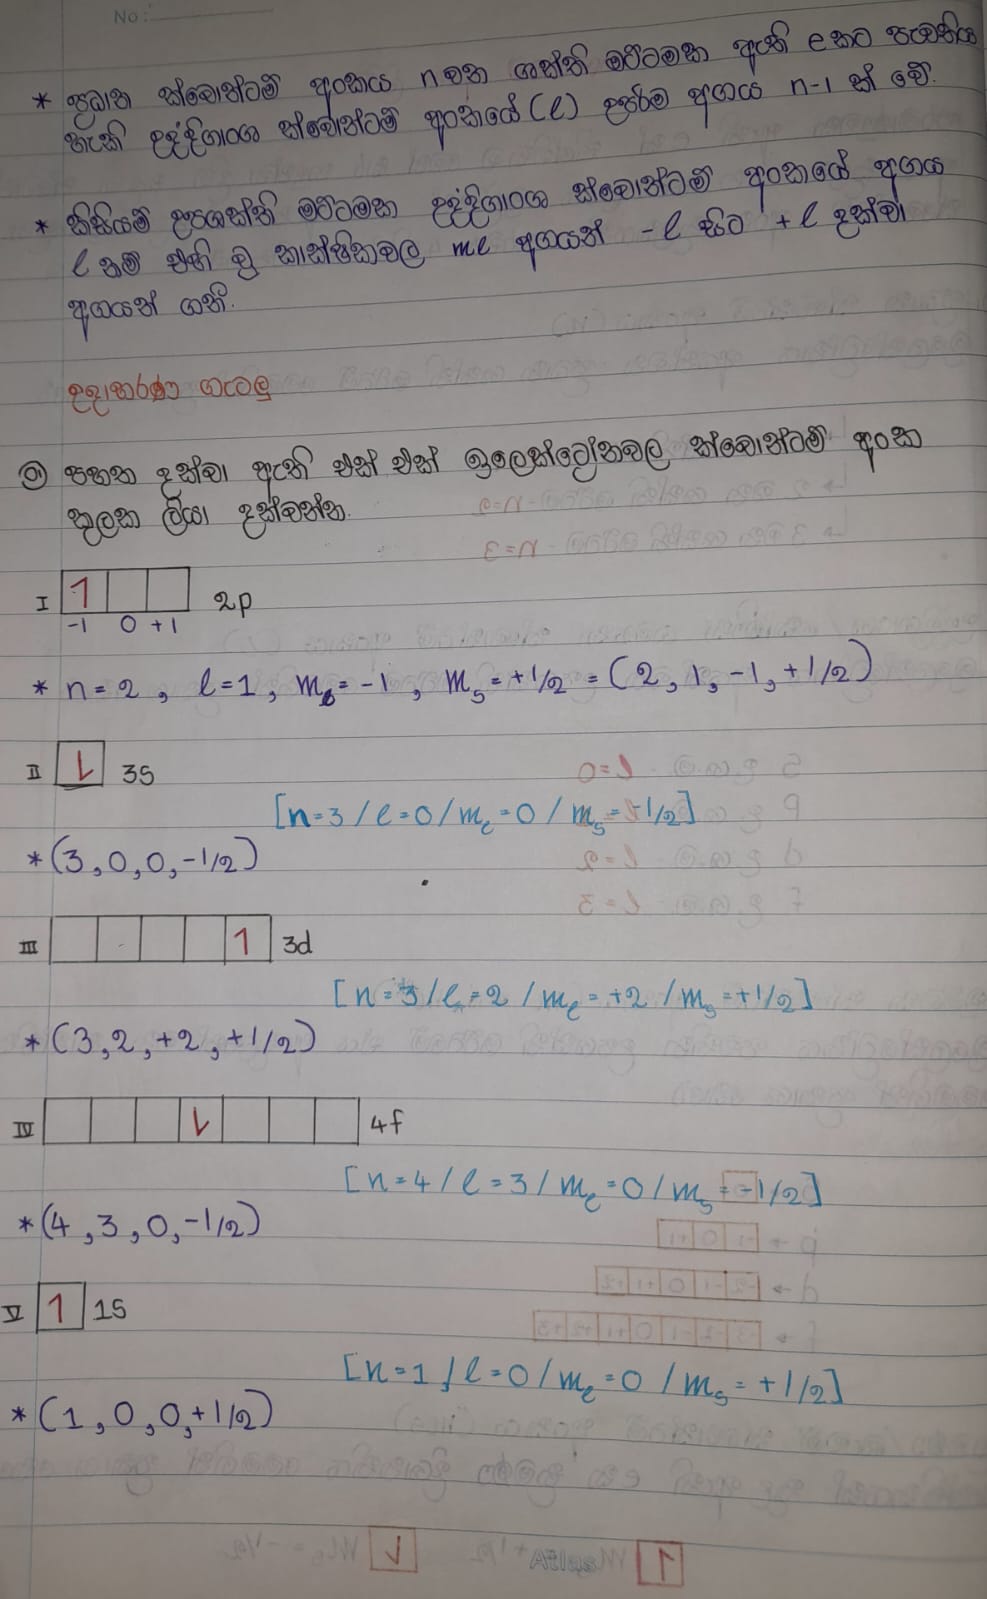 No:
* ප්‍රධාන ක්වොන්ටම් අංකය n වන ශක්ති මට්ටමක ඇති e කට පැවතිය
හැකි උද්දිගංශ ක්වොන්ටම් අංකයේ (l) උපරිම අගය n-1 ක් වේ.
* කිසියම් උපශක්ති මට්ටමක උද්දිගංශ ක්වොන්ටම් අංකයේ අගය
l නම් එහි වූ කාක්ෂිකවල ml අගයන් -l සිට +l දක්වා
අගයන් ගනී.
උදාහරණ ගැටලු
① පහත දක්වා ඇති එක් එක් ඉලෙක්ට්‍රෝනවල ක්වොන්ටම් අංක
කුලක ලියා දක්වන්න.
I 1 2p
-1 0 +1
* n=2, l=1, ml=-1, ms=+1/2 = (2, 1, -1, +1/2)
II 3s
[n=3 / l=0 / ml=0 / ms=-1/2]
* (3, 0, 0, -1/2)
III 1 3d
[n=3 / l=2 / ml=+2 / ms=+1/2]
* (3, 2, +2, +1/2)
IV 4f
[n=4 / l=3 / ml=0 / ms=-1/2]
* (4, 3, 0, -1/2)
V 1 1s
[n=1 / l=0 / ml=0 / ms=+1/2]
* (1, 0, 0, +1/2)